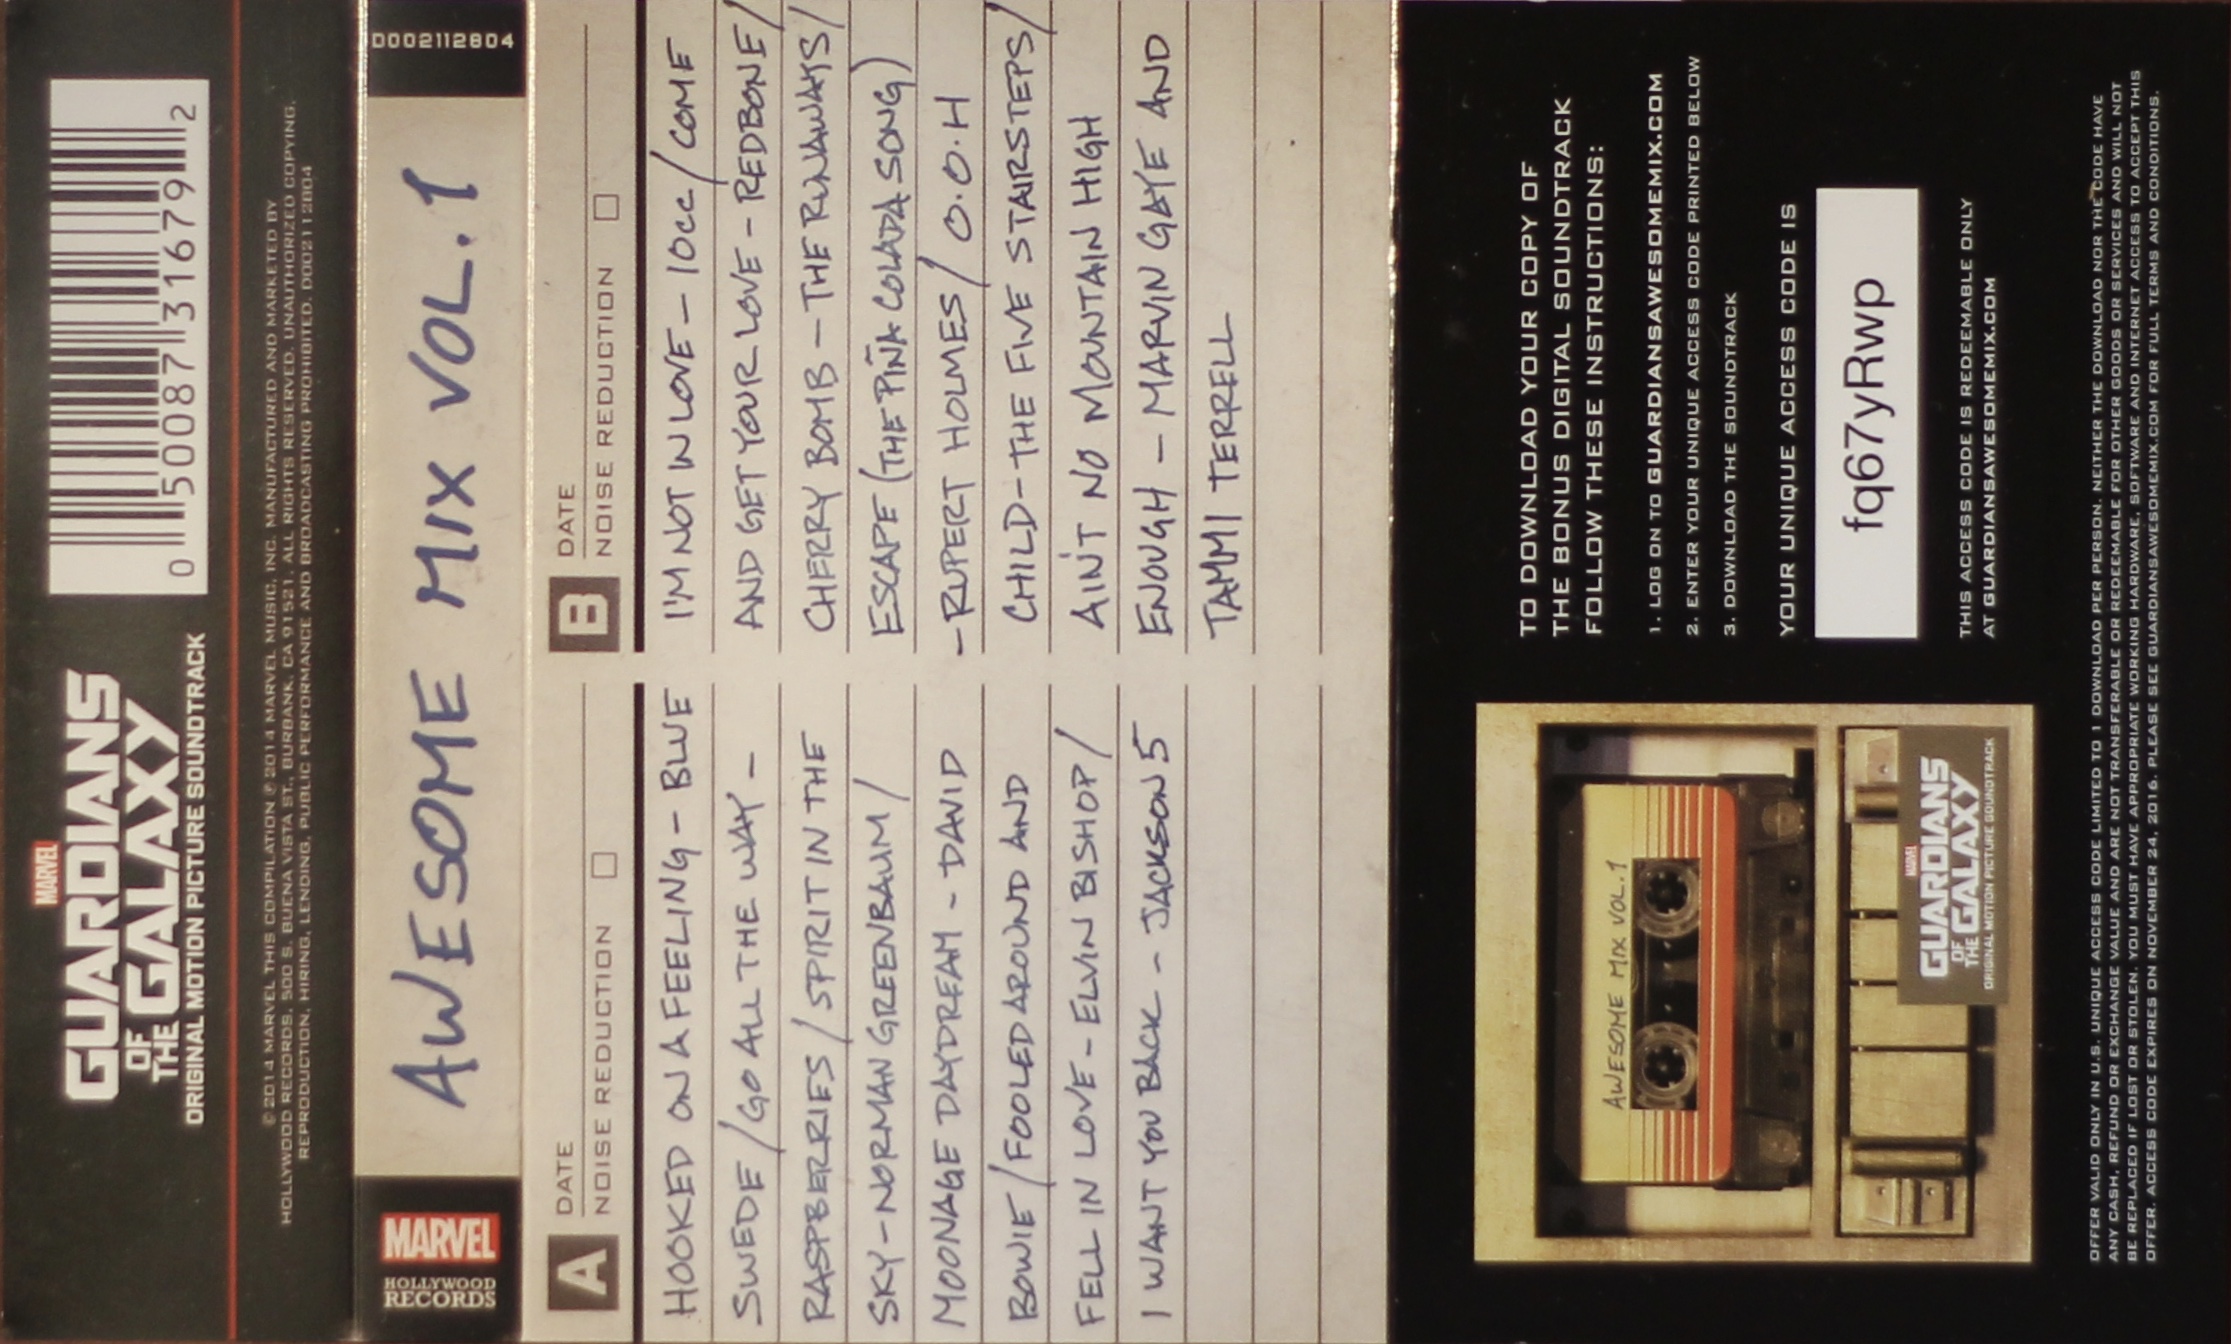 MARVEL
GUARDIANS
OF
THE GALAXY
ORIGINAL MOTION PICTURE SOUNDTRACK
0 50087 31679 2
© 2014 MARVEL THIS COMPILATION ℗ 2014 MARVEL MUSIC, INC. MANUFACTURED AND MARKETED BY
HOLLYWOOD RECORDS. 500 S. BUENA VISTA ST., BURBANK, CA 91521. ALL RIGHTS RESERVED. UNAUTHORIZED COPYING,
REPRODUCTION, HIRING, LENDING, PUBLIC PERFORMANCE AND BROADCASTING PROHIBITED. D002112804
MARVEL
HOLLYWOOD
RECORDS
AWESOME MIX VOL.1
D002112804
A
DATE
NOISE REDUCTION
HOOKED ON A FEELING - BLUE
SWEDE / GO ALL THE WAY -
RASPBERRIES / SPIRIT IN THE
SKY - NORMAN GREENBAUM /
MOONAGE DAYDREAM - DAVID
BOWIE / FOOLED AROUND AND
FELL IN LOVE - ELVIN BISHOP /
I WANT YOU BACK - JACKSON 5
B
DATE
NOISE REDUCTION
I'M NOT IN LOVE - 10cc / COME
AND GET YOUR LOVE - REDBONE /
CHERRY BOMB - THE RUNAWAYS /
ESCAPE (THE PIÑA COLADA SONG)
- RUPERT HOLMES / O.O.H
CHILD - THE FIVE STAIRSTEPS /
AIN'T NO MOUNTAIN HIGH
ENOUGH - MARVIN GAYE AND
TAMMI TERRELL
AWESOME MIX VOL.1
MARVEL
GUARDIANS
OF
THE GALAXY
ORIGINAL MOTION PICTURE SOUNDTRACK
TO DOWNLOAD YOUR COPY OF
THE BONUS DIGITAL SOUNDTRACK
FOLLOW THESE INSTRUCTIONS:
1. LOG ON TO GUARDIANSAWESOMEMIX.COM
2. ENTER YOUR UNIQUE ACCESS CODE PRINTED BELOW
3. DOWNLOAD THE SOUNDTRACK
YOUR UNIQUE ACCESS CODE IS
fq67yRwp
THIS ACCESS CODE IS REDEEMABLE ONLY
AT GUARDIANSAWESOMEMIX.COM
OFFER VALID ONLY IN U.S. UNIQUE ACCESS CODE LIMITED TO 1 DOWNLOAD PER PERSON. NEITHER THE DOWNLOAD NOR THE CODE HAVE
ANY CASH, REFUND OR EXCHANGE VALUE AND ARE NOT TRANSFERABLE OR REDEEMABLE FOR OTHER GOODS OR SERVICES AND WILL NOT
BE REPLACED IF LOST OR STOLEN. YOU MUST HAVE APPROPRIATE WORKING HARDWARE, SOFTWARE AND INTERNET ACCESS TO ACCEPT THIS
OFFER. ACCESS CODE EXPIRES ON NOVEMBER 24, 2016. PLEASE SEE GUARDIANSAWESOMEMIX.COM FOR FULL TERMS AND CONDITIONS.